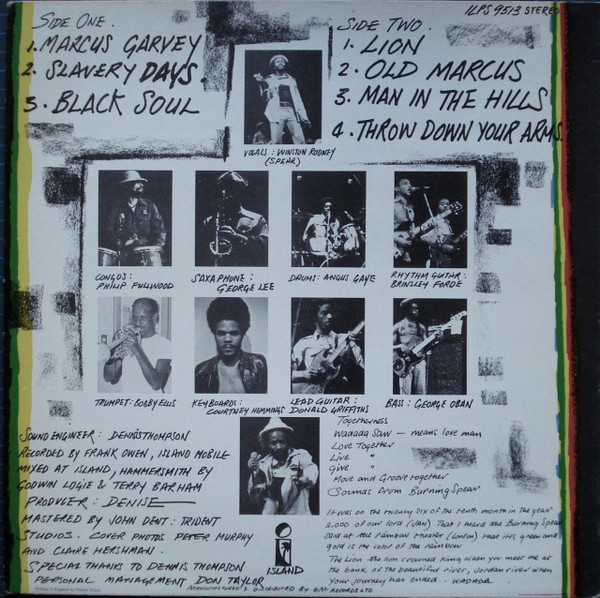 ILPS 9513 STEREO
SIDE ONE.
1. MARCUS GARVEY
2. SLAVERY DAYS.
3. BLACK SOUL
SIDE TWO.
1. LION
2. OLD MARCUS
3. MAN IN THE HILLS
4. THROW DOWN YOUR ARMS.
VOCALS: WINSTON RODNEY
(SPEAR)
CONGOS:
PHILIP FULLWOOD
SAXAPHONE:
GEORGE LEE
DRUMS: ANGUS GAYE
RHYTHM GUITAR:
BRINSLEY FORDE
TRUMPET: BOBBY ELLIS
KEYBOARDS:
COURTNEY HEMMINGS
LEAD GUITAR:
DONALD GRIFFITHS
BASS: GEORGE OBAN
SOUND ENGINEER: DENNIS THOMPSON
RECORDED BY FRANK OWEN, ISLAND MOBILE
MIXED AT ISLAND, HAMMERSMITH BY
GODWIN LOGIE & TERRY BARHAM
PRODUCER: DENISE
MASTERED BY JOHN DENT: TRIDENT
STUDIOS. COVER PHOTOS PETER MURPHY
AND CLAIRE HERSHMAN.
SPECIAL THANKS TO DENNIS THOMPSON
PERSONAL MANAGEMENT DON TAYLOR
Togetherness
Wadada Saw - means love man
Love Together
Live "
give "
Move and Groove together
Sounds from Burning Spear
It was on the twenty six of the tenth month in the year
2,000 of our lord (JAH) That I heard the Burning Spear
said at the rainbow theater (London) that it's green and
gold is the color of the rainbow
The Lion the lion crowned king when you meet me at
the bank of the beautiful river, Jordan river when
your journey has ended. WADADA
ISLAND
MANUFACTURED & DISTRIBUTED BY EMI RECORDS LTD